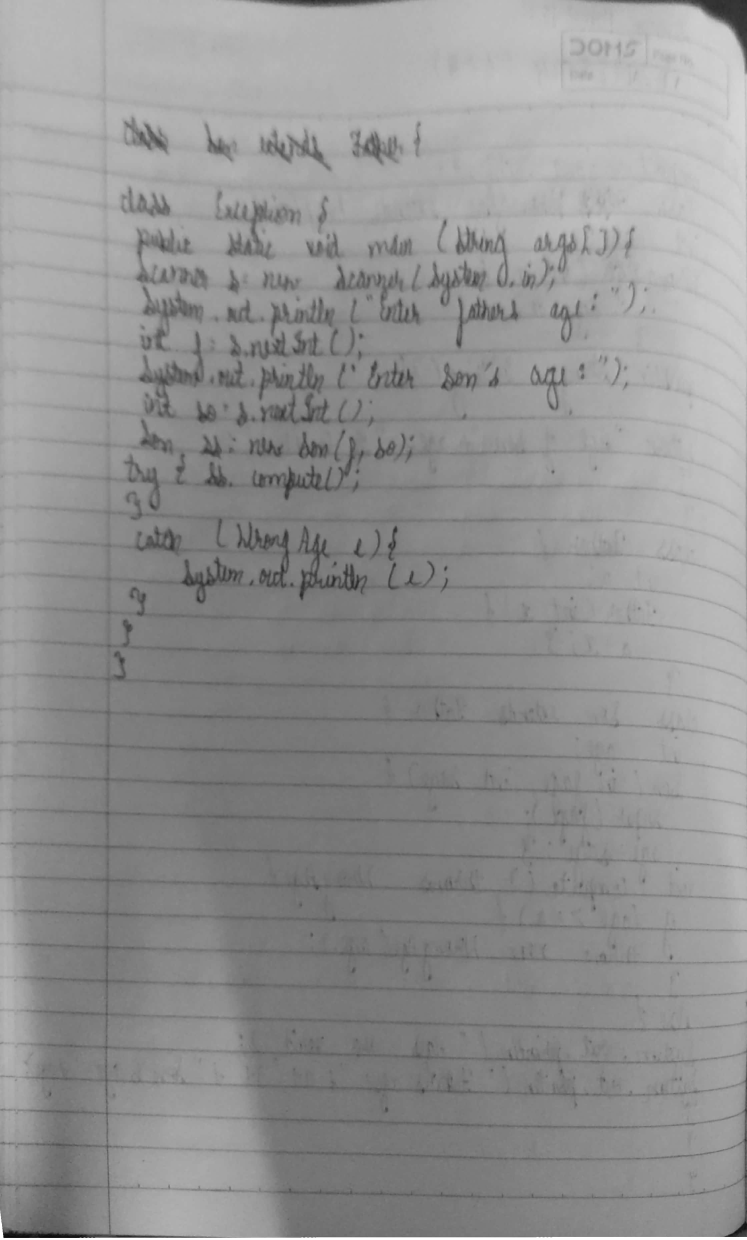 DOMS
class Son extends Father {
class Exception {
public static void main (String args[]) {
Scanner s = new Scanner (System.in);
System.out.println ("Enter fathers age : ");
int f = s.nextInt ();
System.out.println (" Enter Son's age : ");
int so = s.nextInt ();
Son ss = new Son (f, so);
try { ss. compute();
}
catch (WrongAge e) {
System.out.println (e);
}
}
}